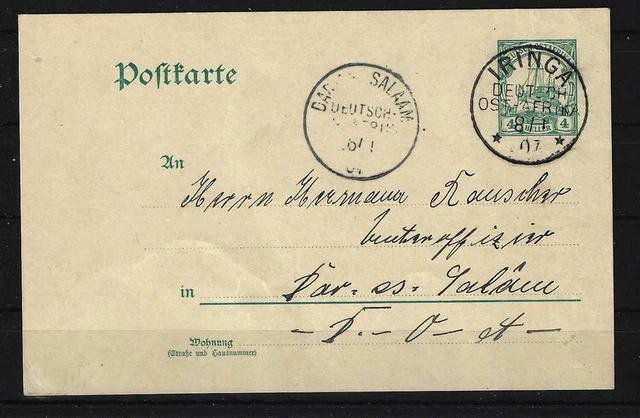 Postkarte
DEUTSCH-OSTAFRIKA
4 HELLER 4
IRINGA
DEUTSCH
OSTAFRIKA
8/1
07
DAR SALAAM
DEUTSCH-
8/1
An
Herrn Hermann Rauscher
Unteroffizier
in Dar-es-Salâm
– D. – O – A –
Wohnung
(Straße und Hausnummer)